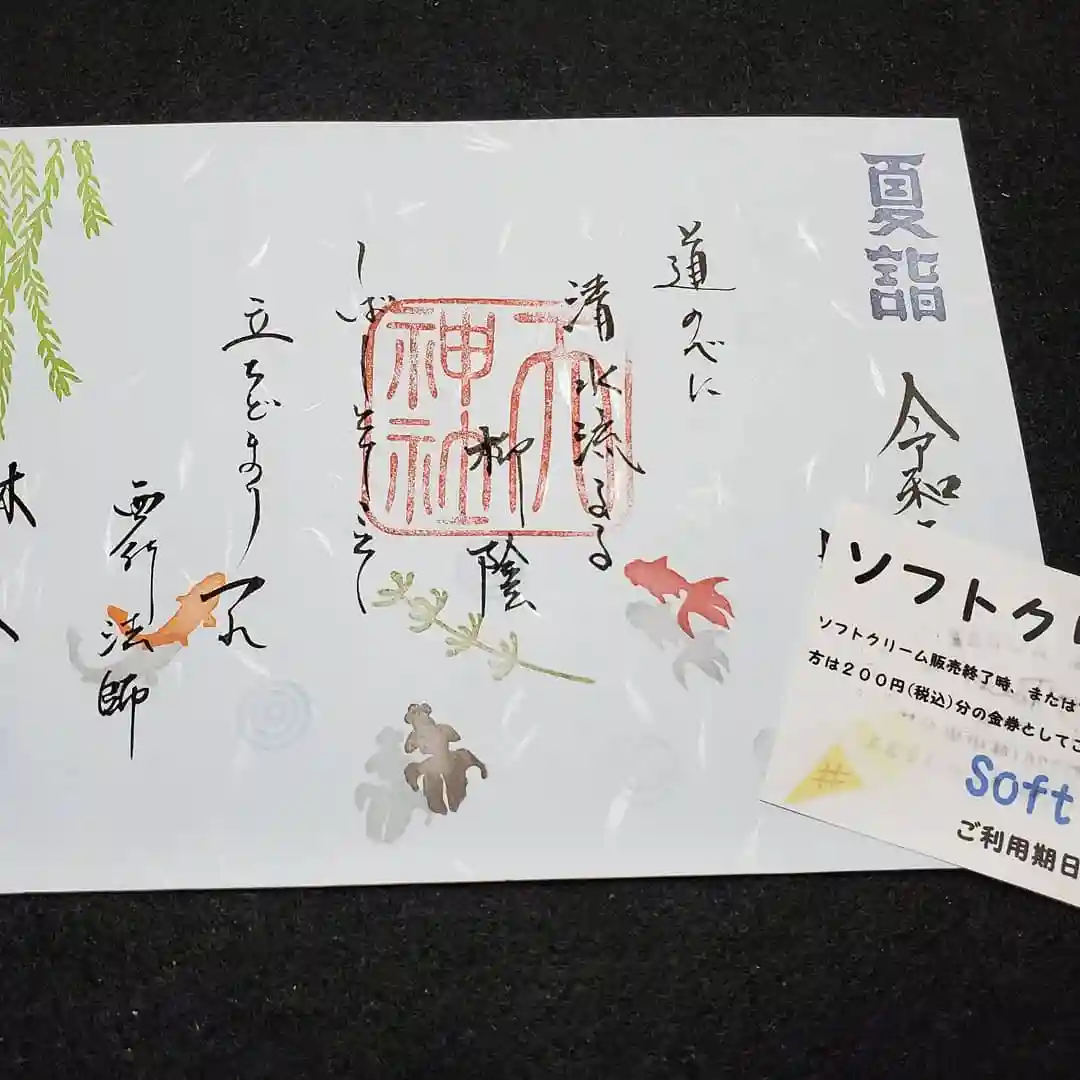 夏詣
令和
道のべに
清水流るる
柳陰
しばしとてこそ
立ちどまり
つれ
西行法師
神社
ソフトク
ソフトクリーム販売終了時、または
方は200円(税込)分の金券としてご
Soft
ご利用期日